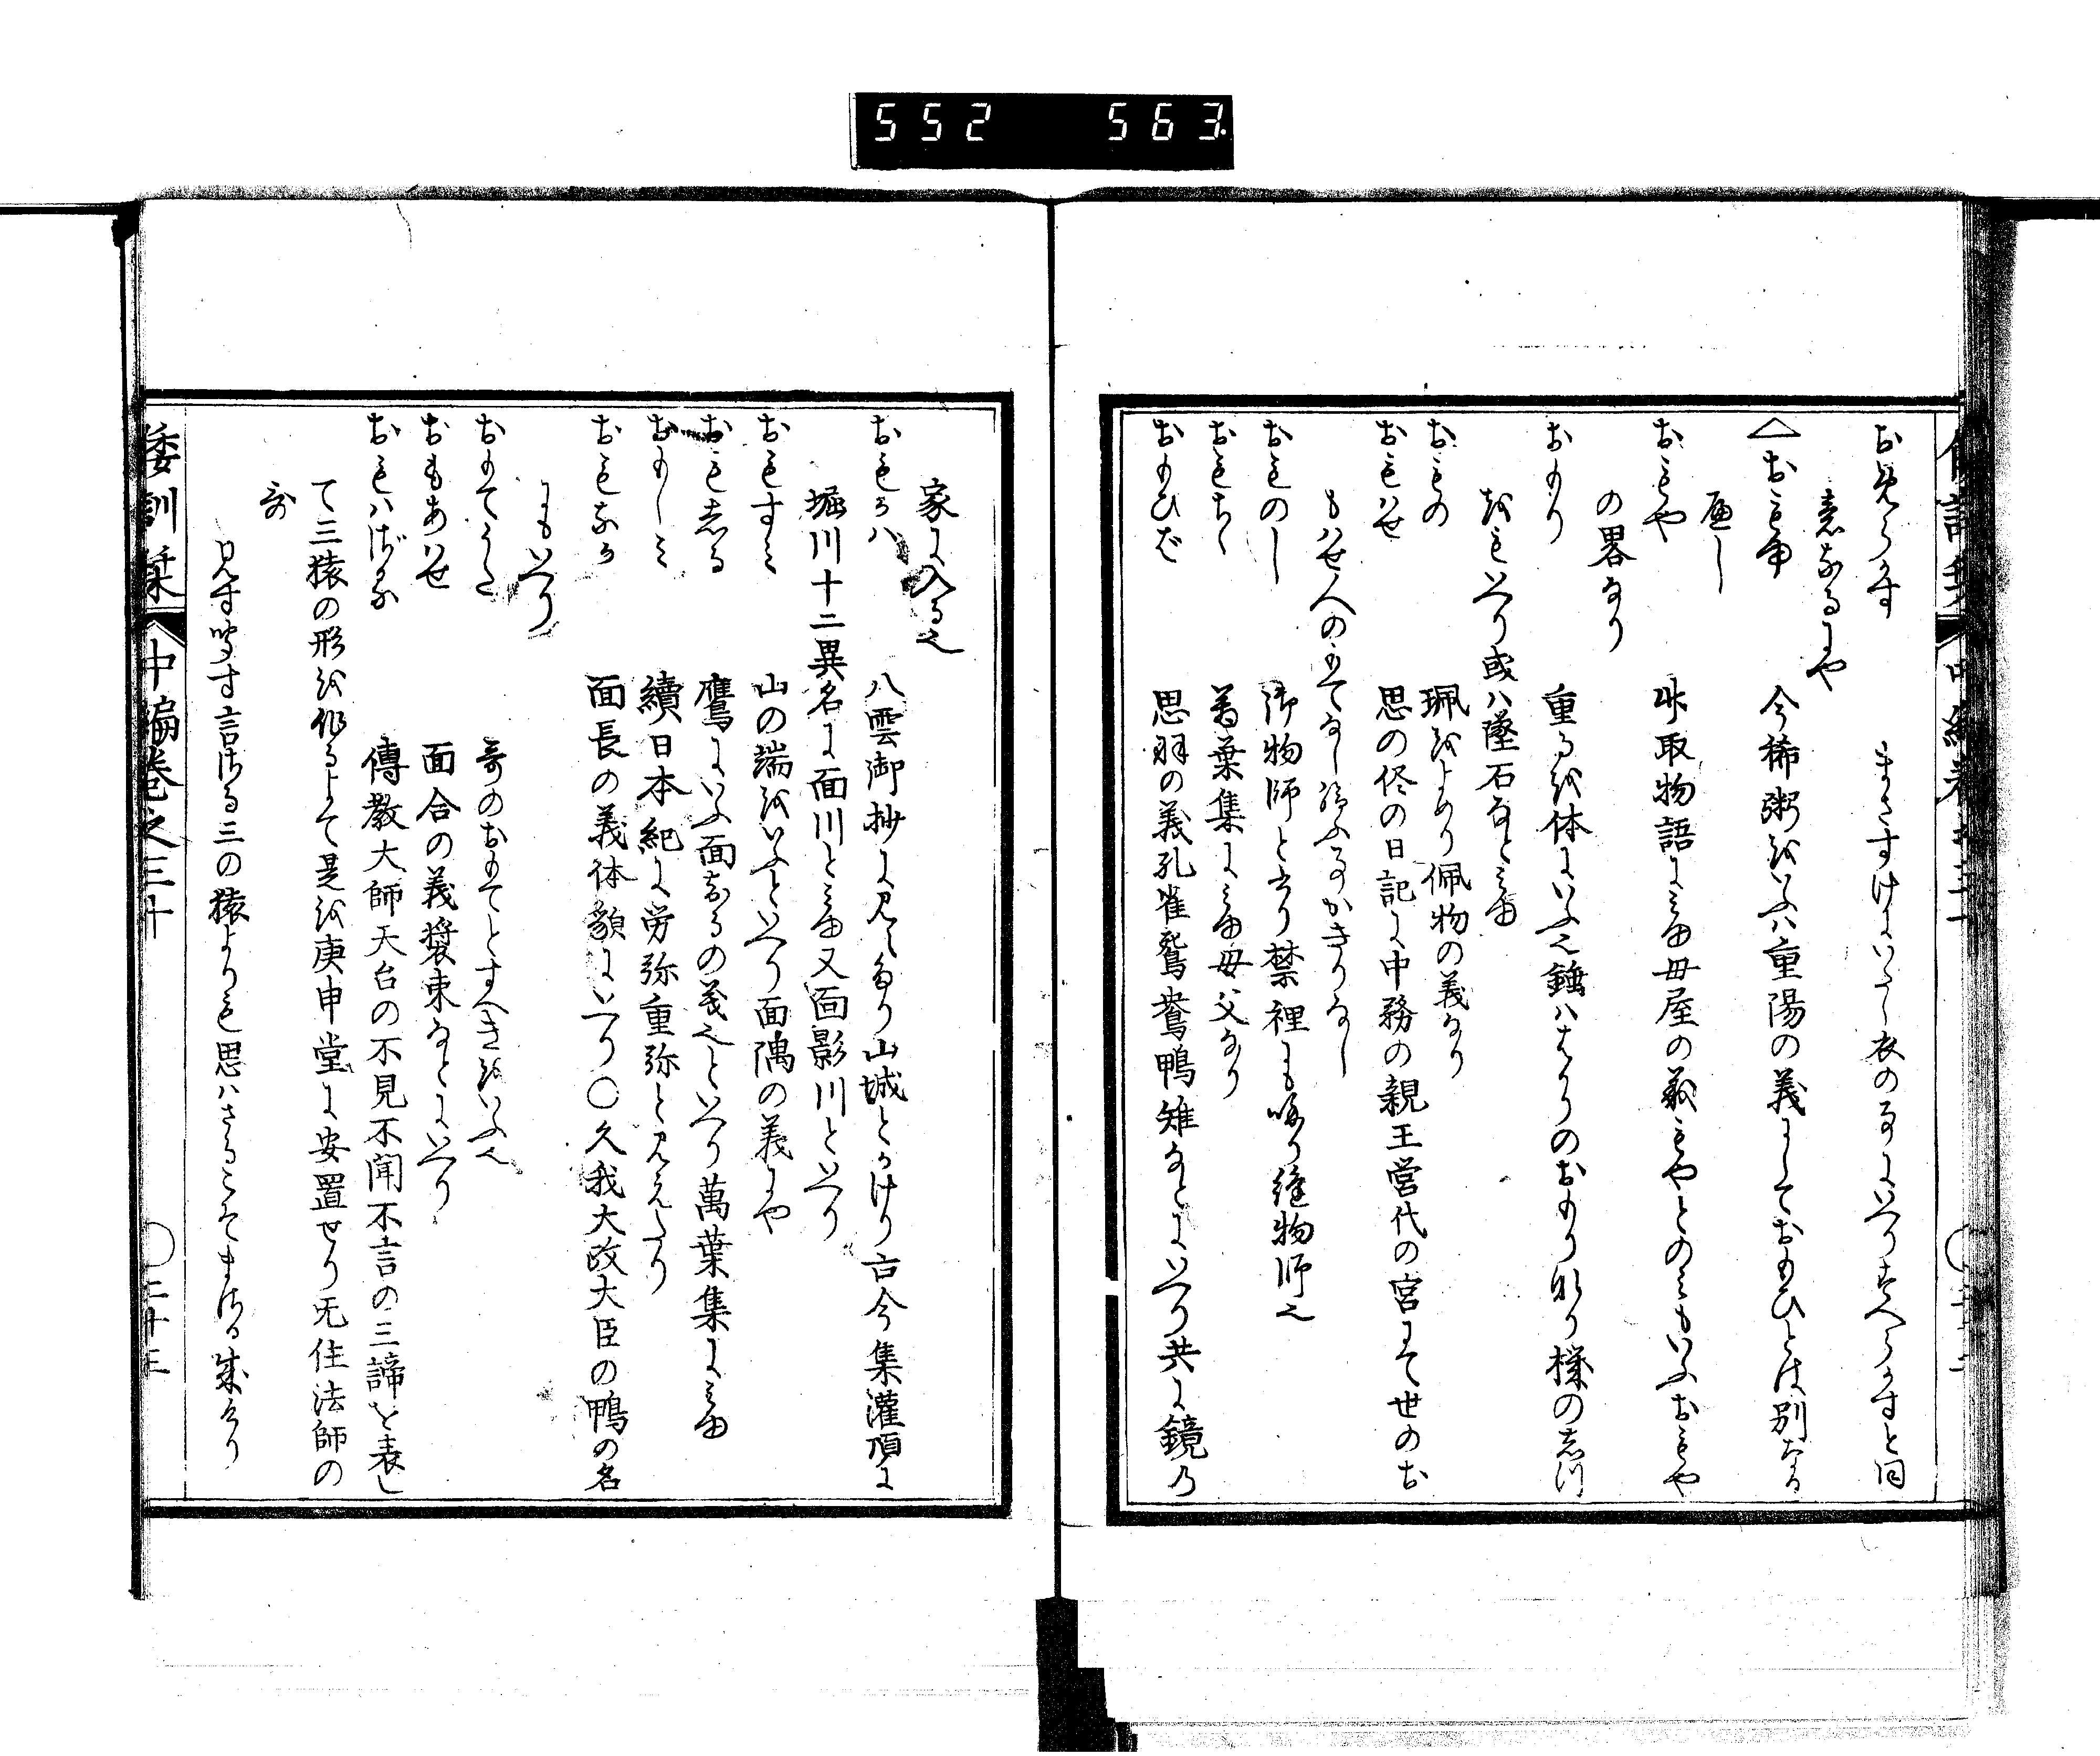 552 563
おめらかす　まさすけにいたく衣の事にいへりすへらかすと同
意なるにや
△おもゆ　今稀粥をいふハ重陽の義にしておもひとは別なる
へし
おもや　竹取物語にみゆ母屋の義もやとのみもいふおもや
の畧なり
おもり　重るを体にいふ也錘ハはかりのおもり也
をもいへり或ハ墜石なとみゆ
おもの　珮をよめり佩物の義なり
おもはせ　思の侭の日記に中務の親王営代の宮にて世のお
もはせ人のもてなし給ふ事かきりなし
おものし　御物師と書り禁裡にも唱ふ縫物師也
おもちゝ　萬葉集にみゆ母父なり
おもひば　思羽の義孔雀鴛鴦鴨雉なとにいへり共に鏡の
家に入る也
おもかハ　八雲御抄に見えたり山城とかけり古今集灌頂に
堀川十二異名に面川とみゆ又面影川といへり
おもすみ　山の端をいふといへり面隅の義にや
おもしる　鷹にいふ面なるの義也といへり萬葉集にみゆ
おもしみ　續日本紀に労弥重弥と見えたり
おもなか　面長の義体貌にいへり〇久我大政大臣の鴨の名
にもいへり
おもてうた　哥のおもてとすへきをいふ也
おもあはせ　面合の義裝束なとにいへり
おもハざる　傳教大師天台の不見不聞不言の三諦を表し
て三猿の形を作るよて是を庚申堂に安置せり无住法師の
歌
見す聞す言はさる三の猿よりも思ハさるこそまさる成けり
倭訓栞 中編巻之三十 〇二十三